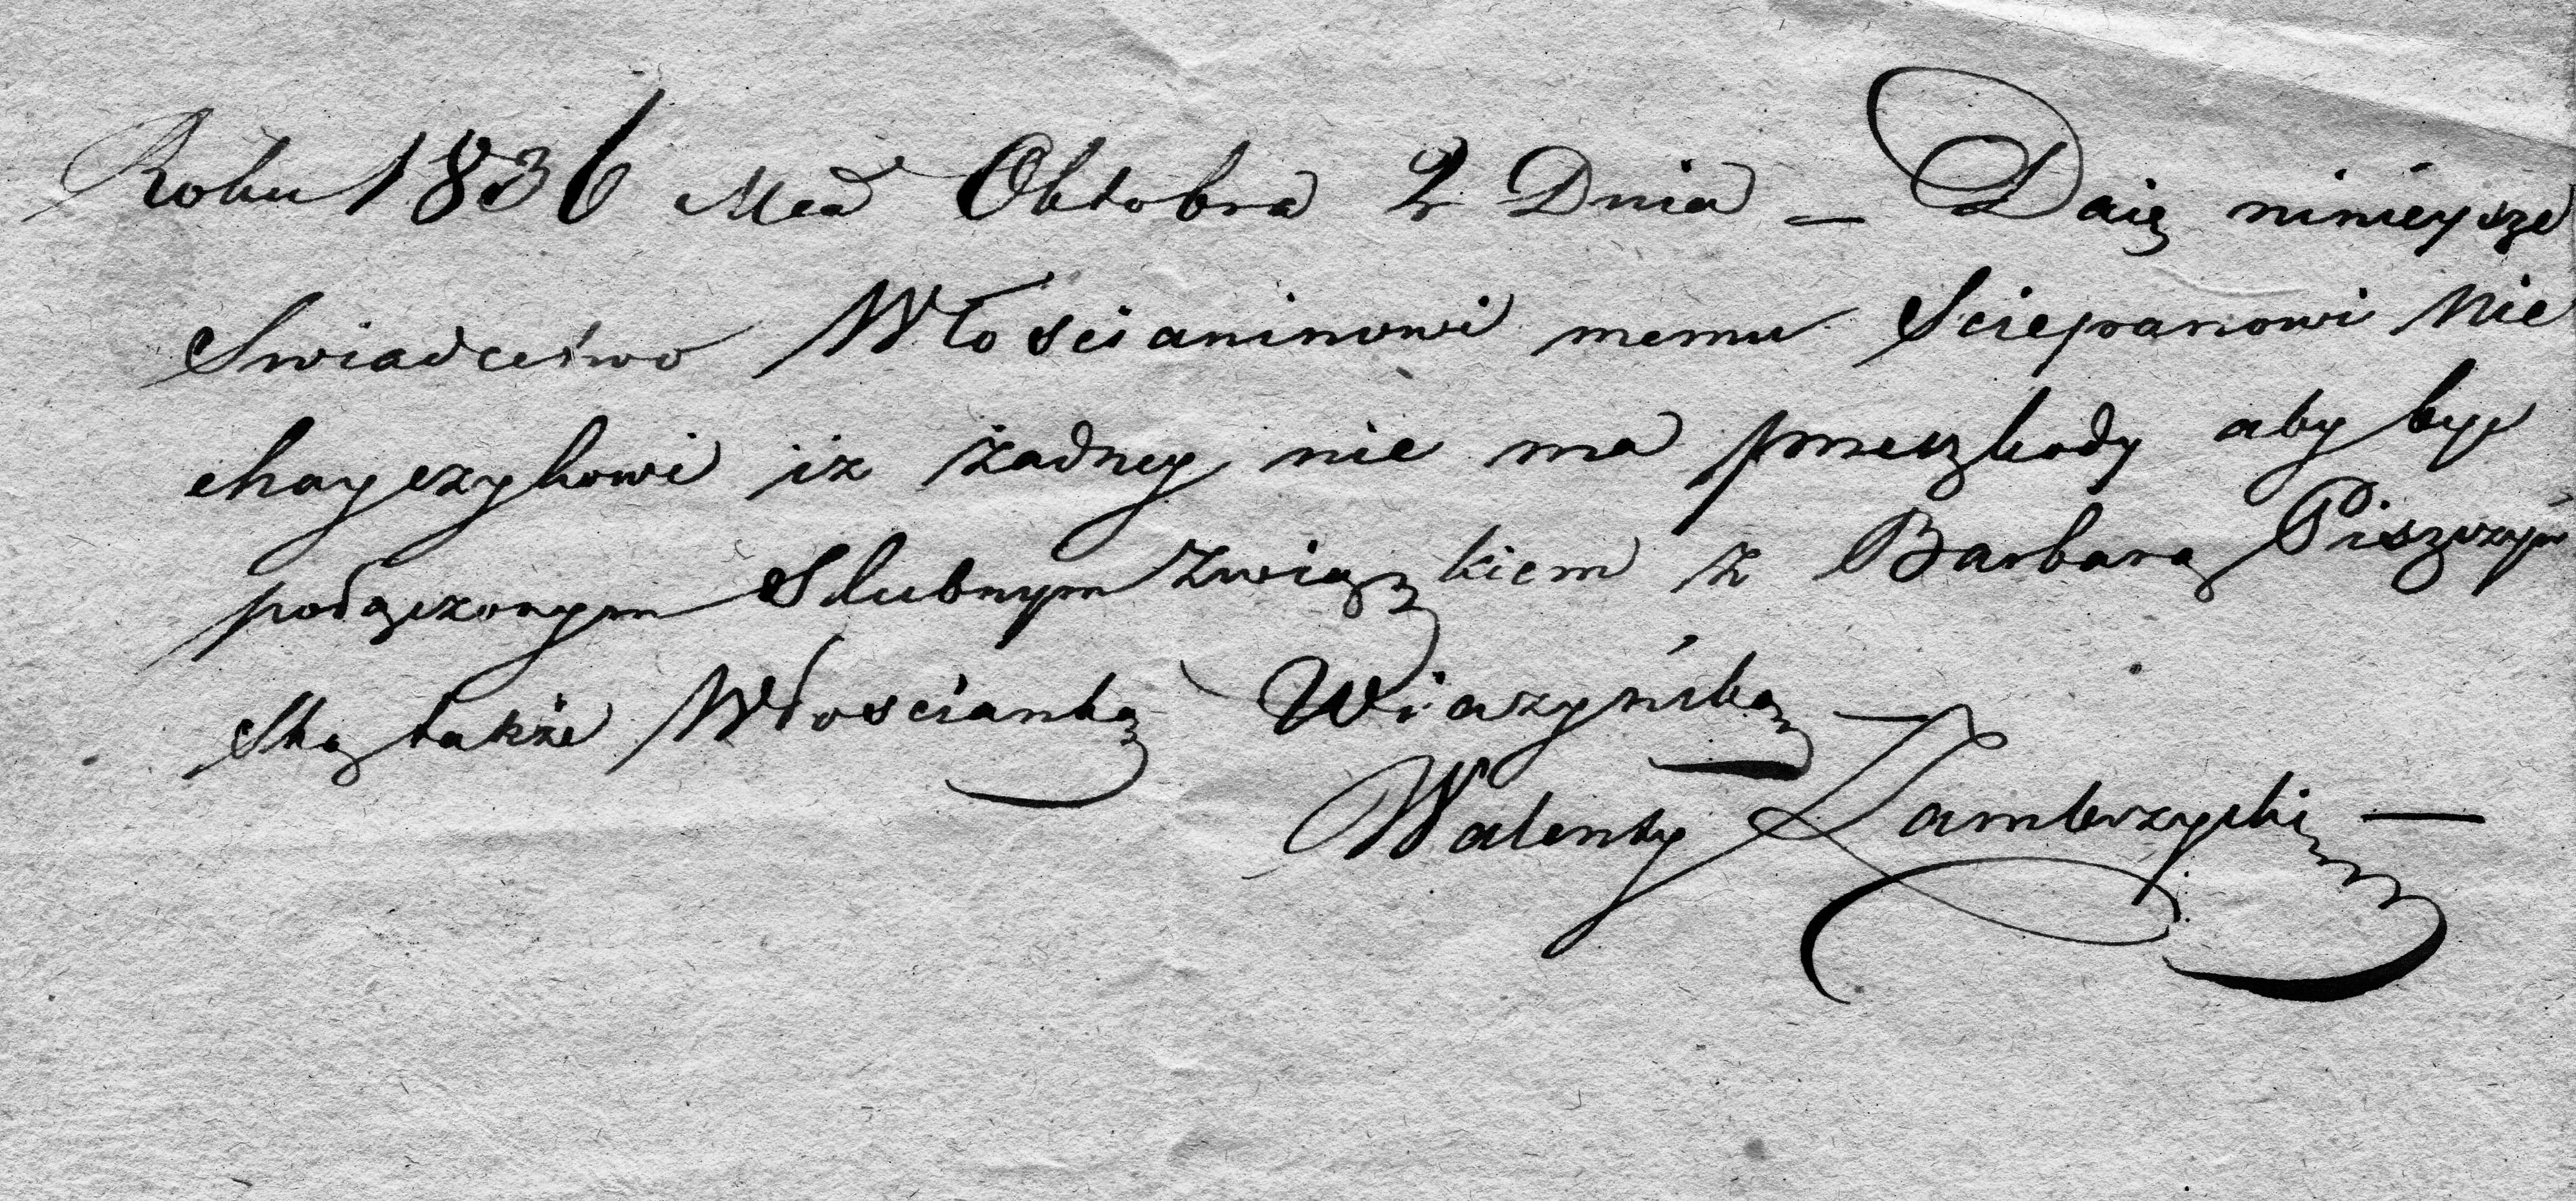 Roku 1836 Mca Oktobra 2 Dnia — Daię ninieysze
Swiadcetwo Włościaninowi memu Sciepanowi Mie
chayczykowi iż żadney nie ma przeszkody aby być
połączonym Slubnym Związkiem z Barbarą Piszczyń
ską także Włościanką Wiazyńską
Walenty Zambrzycki —